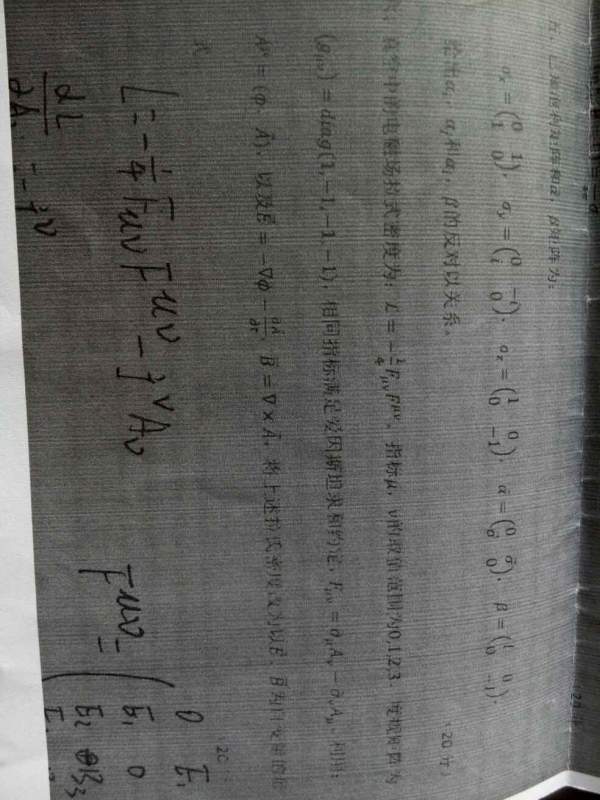 五、已知泡利矩阵和α, β矩阵为:
σₓ = (0 1; 1 0), σᵧ = (0 −i; i 0), σ_z = (1 0; 0 −1), α⃗ = (0 σ⃗; σ⃗ 0), β = (1 0; 0 −1).
给出αᵢ, αⱼ和αᵢ, β的反对易关系。 (20分)
真空中的电磁场拉式密度为: ℒ = −1/4 F_μν F^μν, 指标μ, ν的取值范围为0,1,2,3. 度规矩阵为
(g_μν) = diag(1, −1, −1, −1), 相同指标满足爱因斯坦求和约定, F_μν = ∂_μA_ν − ∂_νA_μ, 利用:
A^μ = (ϕ, A⃗), 以及E⃗ = −∇ϕ − ∂A⃗/∂t, B⃗ = ∇ × A⃗, 将上述拉式密度改为以E⃗, B⃗为自变量的形
式 (20
L = −1/4 F_μν F^μν − j^ν A_ν
∂L/∂A = −j^ν
F^μν = (0 E₁
E₁ 0
E₂ B₃